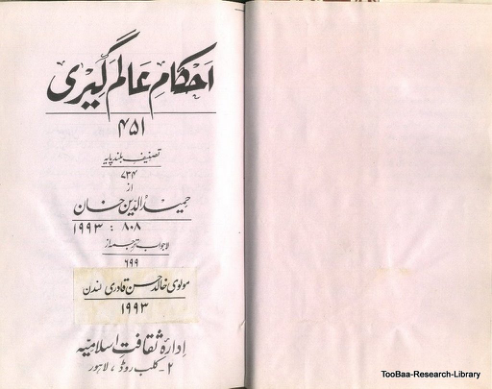 احکامِ عالم گیری
۴۵۱
تصنیف بلند پایہ
۷۳۴
از
حمید الدین خان
۸۰۸ : ۱۹۹۳
لاجواب ترجمہ از
۶۹۹
مولوی خالد حسن قادری لندن
۱۹۹۳
ادارہ ثقافت اسلامیہ
۲-کلب روڈ، لاہور
TooBaa-Research-Library